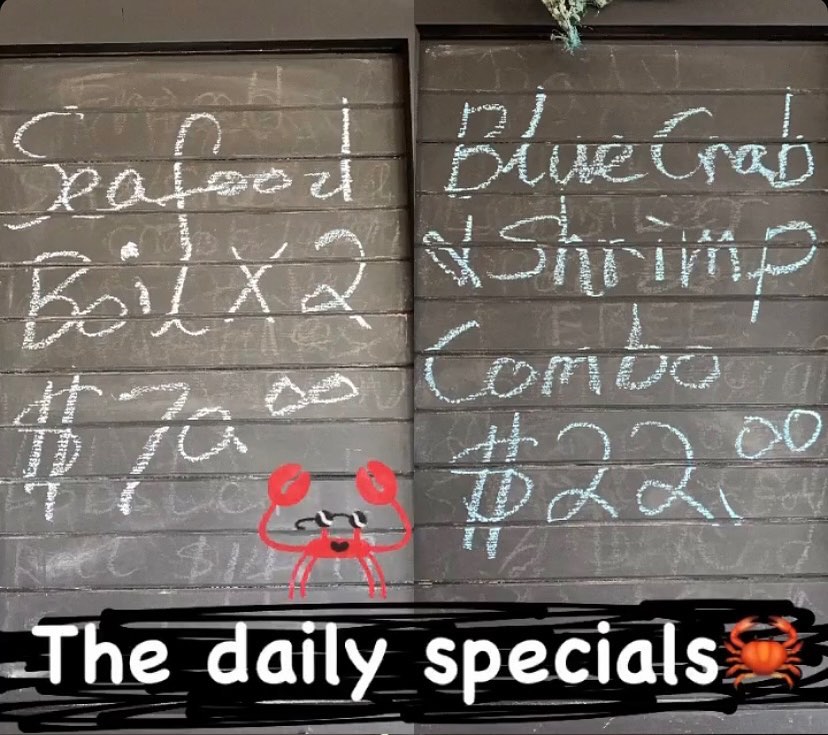 Seafood
Boil x 2
$70.00
Blue Crab
& Shrimp
Combo
$22.00
The daily specials🦀